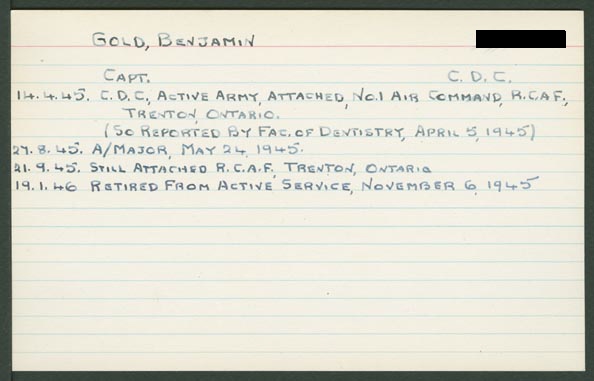 GOLD, BENJAMIN
CAPT. C. D. C.
14.4.45. C.D.C., ACTIVE ARMY, ATTACHED, NO.1 AIR COMMAND, R.C.A.F.,
TRENTON, ONTARIO.
(SO REPORTED BY FAC. OF DENTISTRY, APRIL 5, 1945)
27.8.45. A/MAJOR, MAY 24, 1945.
21.9.45. STILL ATTACHED R.C.A.F., TRENTON, ONTARIO
19.1.46 RETIRED FROM ACTIVE SERVICE, NOVEMBER 6, 1945